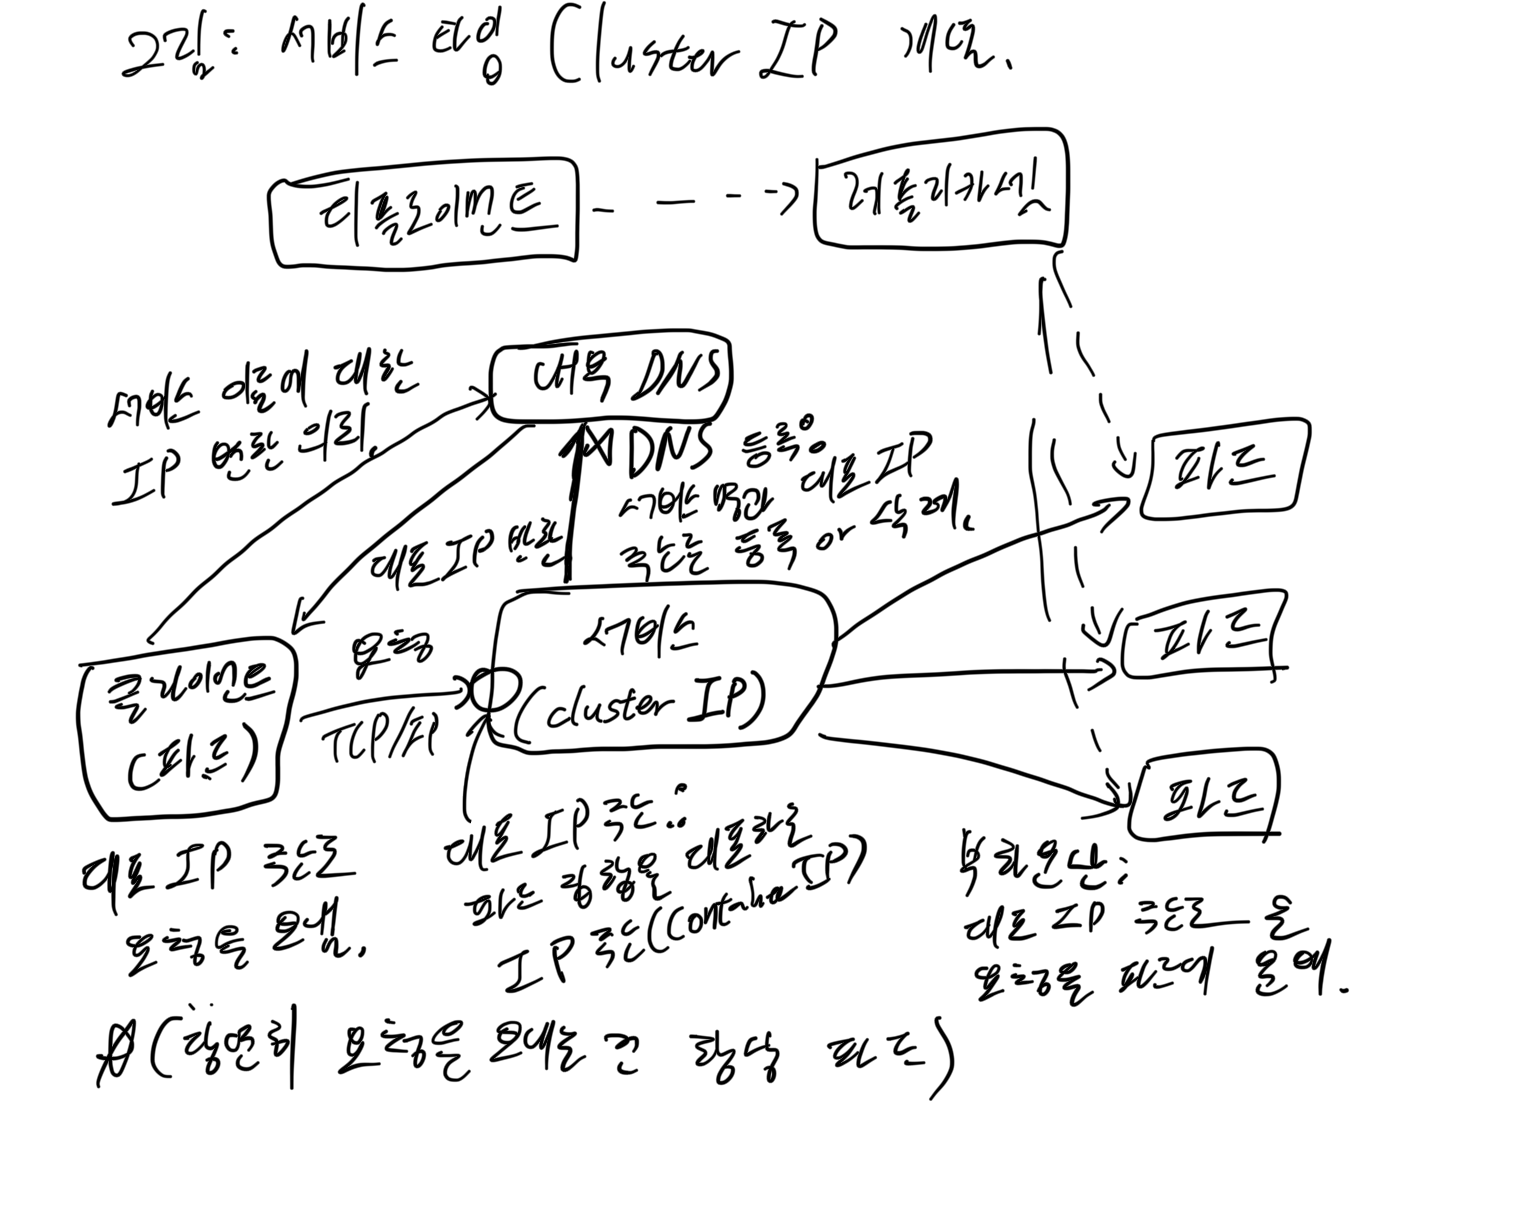 그림: 서비스 타입 Cluster IP 개념.
디플로이먼트
레플리카셋
내부 DNS
서비스 이름에 대한
IP 변환 의뢰.
DNS 등록:
서비스 명과 대표 IP
주소를 등록 or 삭제.
대표 IP 반환
파드
요청
TCP/IP
서비스
(cluster IP)
파드
클라이언트
(파드)
파드
대표 IP 주소로
요청을 보냄.
대표 IP 주소:
파드 집합을 대표하는
IP 주소(Container IP)
부하분산:
대표 IP 주소로 온
요청을 파드에 분배.
(당연히 요청을 보내는 건 항상 파드)